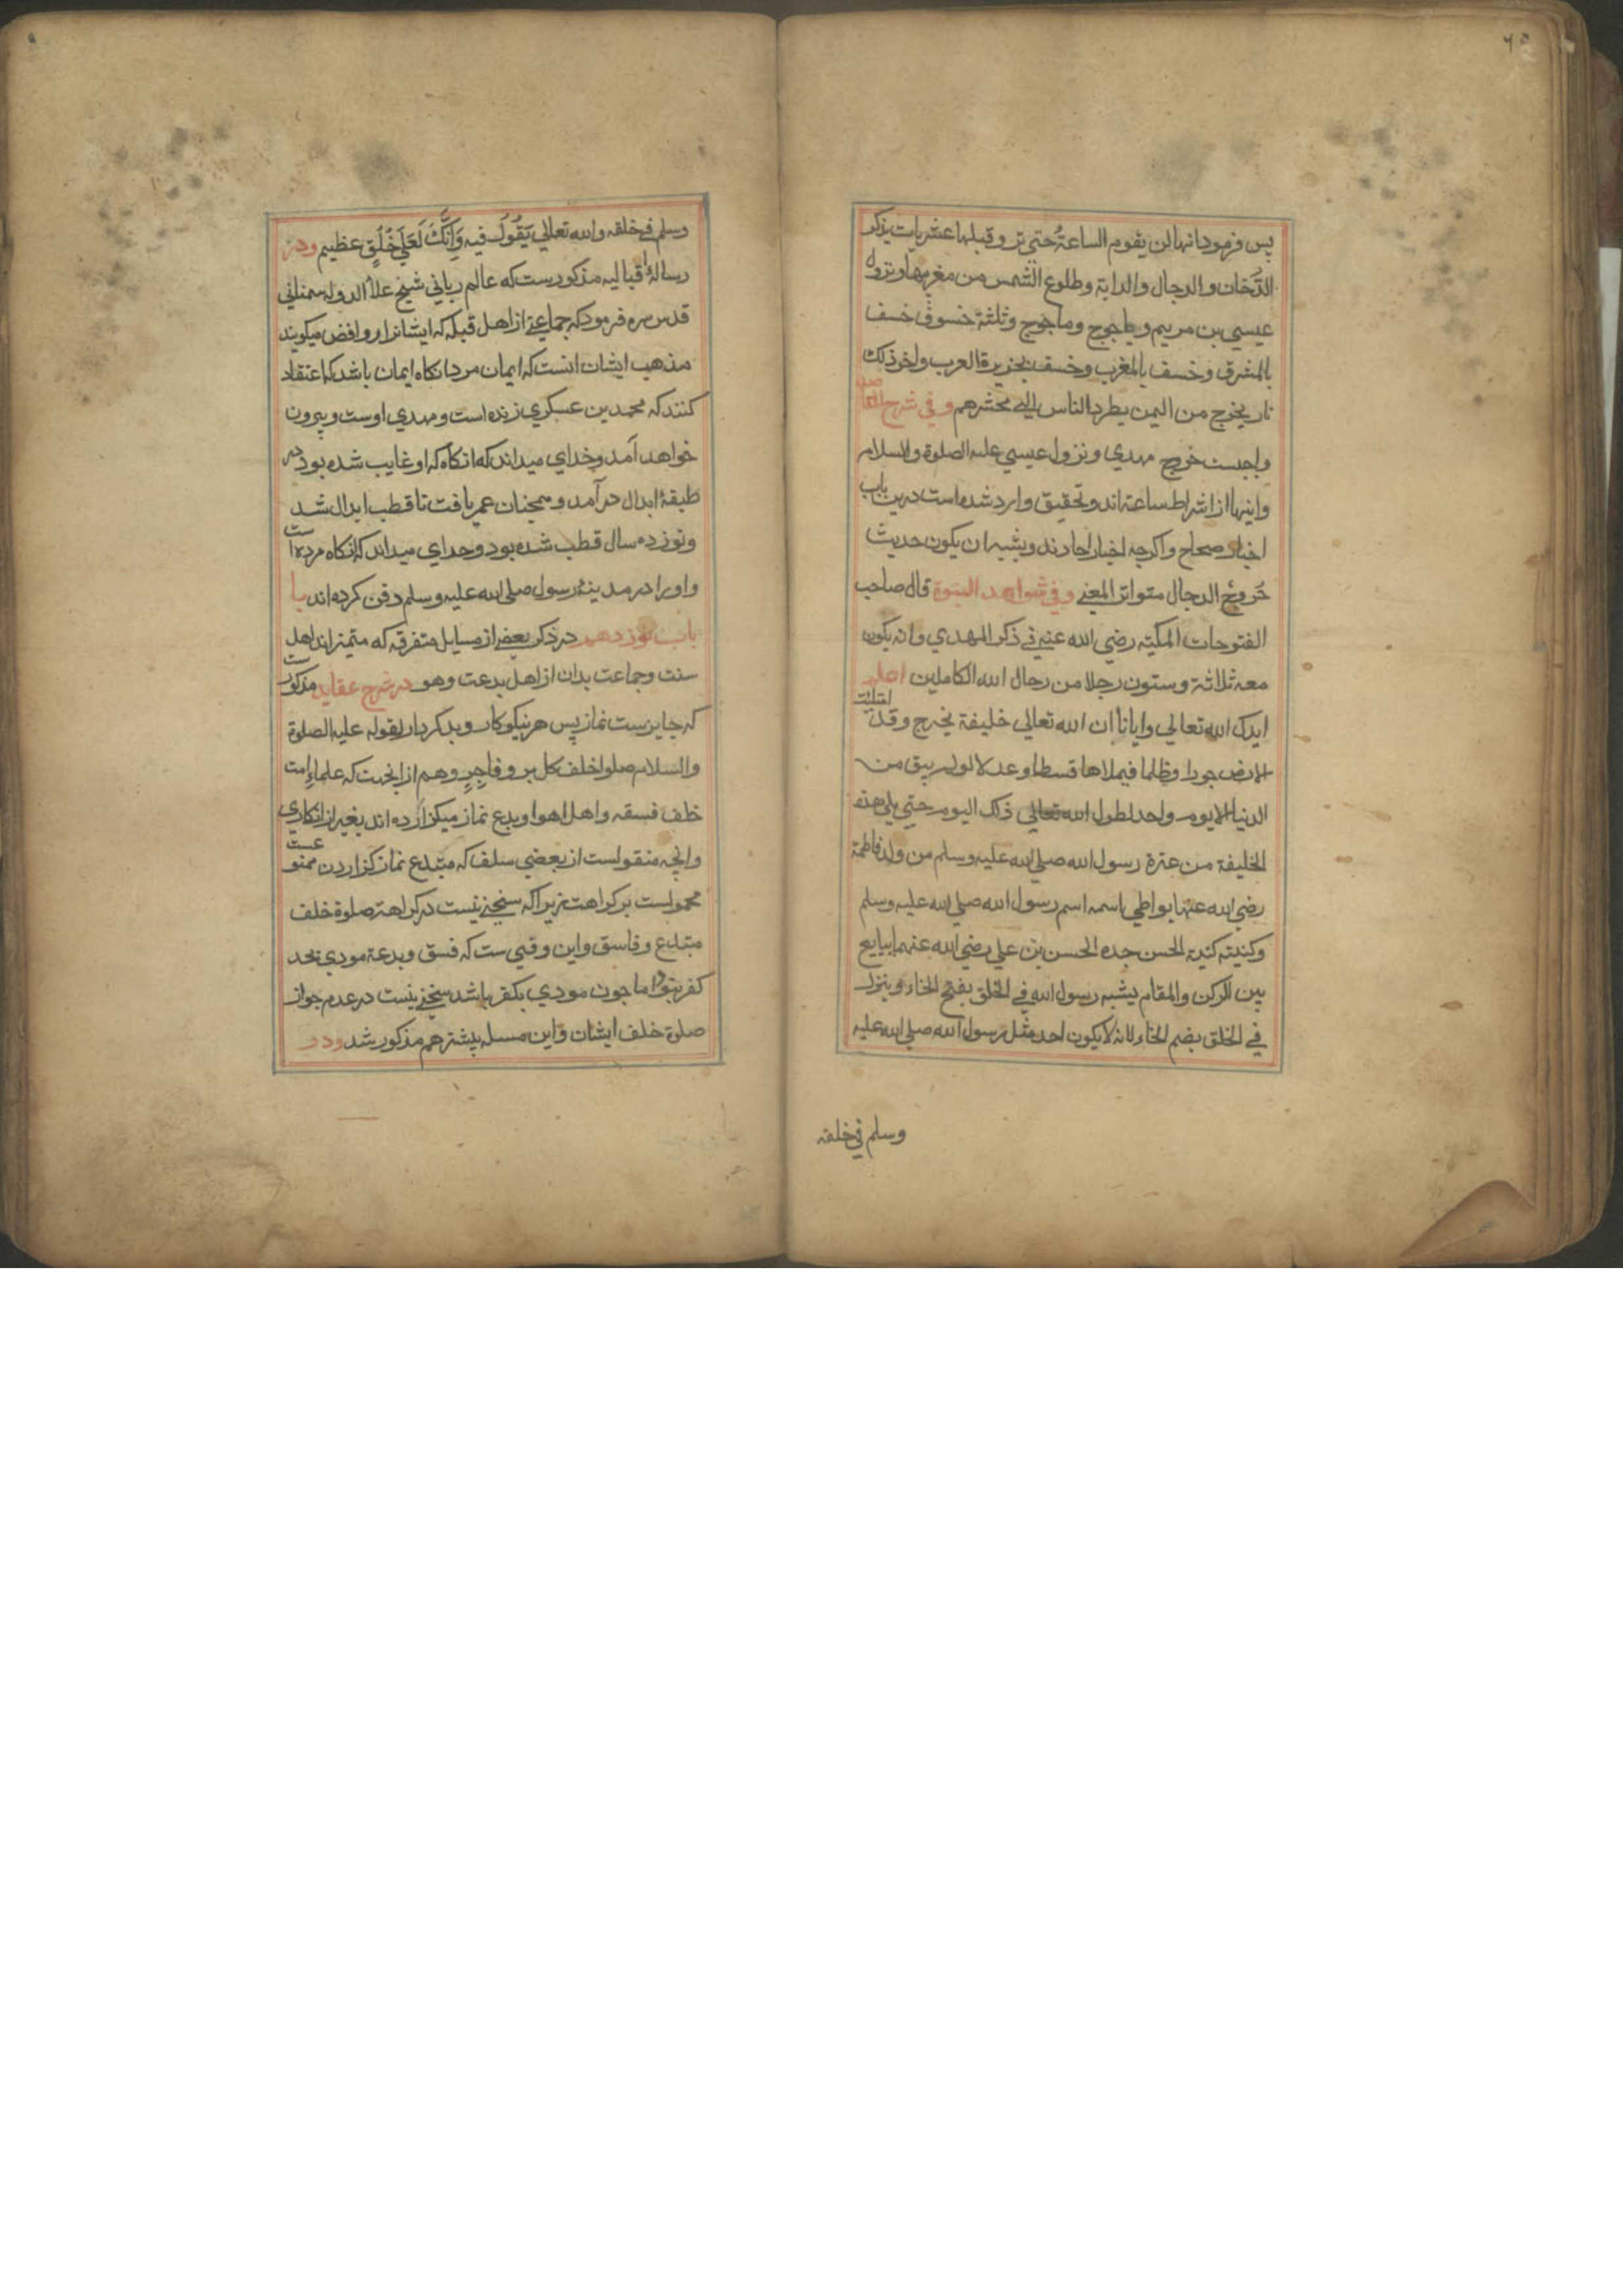 پس فرمود انها لن یقوم الساعةُ حتی تروقبلها عشر یات یذکر
الدُّخان والدجال والدابة وطلوع الشمس من مغربها ونزول
عیسی بن مریم ویاجوج وماجوج وثلثة خسوف خسف
بالمشرق وخسف بالمغرب وخسف بجزیرة العرب واخر ذلک
نار یخرج من الیمن یطرد الناس الی محشرهم و فی شرح المقاصد
واجبست خروج مهدی ونزول عیسی علیه الصلوة والسلام
واینها از اشراط ساعة اند وتحقیق وارد شده است درین باب
اخبار صحاح واکرچه اخبار احادند ویشبه ان یکون حدیث
خُروجُ الدجال متواتر المعنی و فی شواهد النبوة قال صاحب
الفتوحات المکیّه رضی الله عنه فی ذکر المهدی وانه یکون
معه ثلاثة وستون رجلا من رجال الله الکاملین اعلم
ایدک الله تعالی وایانا ان الله تعالی خلیفة یخرج وقد امتلئت
الارض جورا وظلما فیملاها قسطا وعدلا لو لم یبق من
الدنیا الا یوم واحد لطول الله تعالی ذلک الیوم حتی یلی هذه
الخلیفة من عترة رسول الله صلی الله علیه وسلم من ولد فاطمة
رضی الله عنها یواطی اسمه اسم رسول الله صلی الله علیه وسلم
وکنیته کنیة الحسن جده الحسن بن علی رضی الله عنهما یبایع
بین الرکن والمقام یشبه رسول الله فی الخلق بفتح الخاء وینزل
فی الخلق بضم الخاء لانه لا یکون احد مثل رسول الله صلی الله علیه
وسلم فی خلقه
وسلم فی خلقه والله تعالی یَقُولُ فیه وَاِنَّکَ لَعَلَی خُلُقٍ عظیم ودر
رسالهٔ اقبالیه مذکورست که عالم ربانی شیخ علاء الدوله سمنانی
قدس سره فرمود که جماعتی از اهل قبله که ایشانرا روافض میکویند
مذهب ایشان انست که ایمان مرد انکاه ایمان باشد که اعتقاد
کنند که محمد بن عسکری زنده است ومهدی اوست وبیرون
خواهد آمد وخدای میداند که انکاه که او غایب شده بود در
طبقهٔ ابدال درآمد و همچنان عمر یافت تا قطب ابدال شد
ونوزده سال قطب شده بود وخدای میداند که انکاه مرده است
واورا در مدینهٔ رسول صلی الله علیه وسلم دفن کرده اند با
باب نوزدهم در ذکر بعضی از مسایل متفرقه که متمیز اند اهل
سنت وجماعت بدان از اهل بدعت وهو در شرح عقاید مذکورست
که جایزست نماز پس هر نیکوکار وبدکردار لقوله علیه الصلوة
والسلام صلوا خلف کل بر وفاجِرٍ وهم از انجهت که علماءِ امت
خلف فسقه واهل اهوا وبدع نماز میکزارده اند بغیر از انکاری
وانچه منقولست از بعضی سلف که مبتدع نماز کزاردن ممنوعست
محمولست بر کراهت زیرا که سخنی نیست در کراهة صلوة خلف
مبتدع وفاسق واین وقتی ست که فسق وبدعة مودی بحد
کفر نبود اما چون مودی بکفر باشد سخنی نیست در عدم جواز
صلوة خلف ایشان واین مسله پیشتر هم مذکور شد ودر